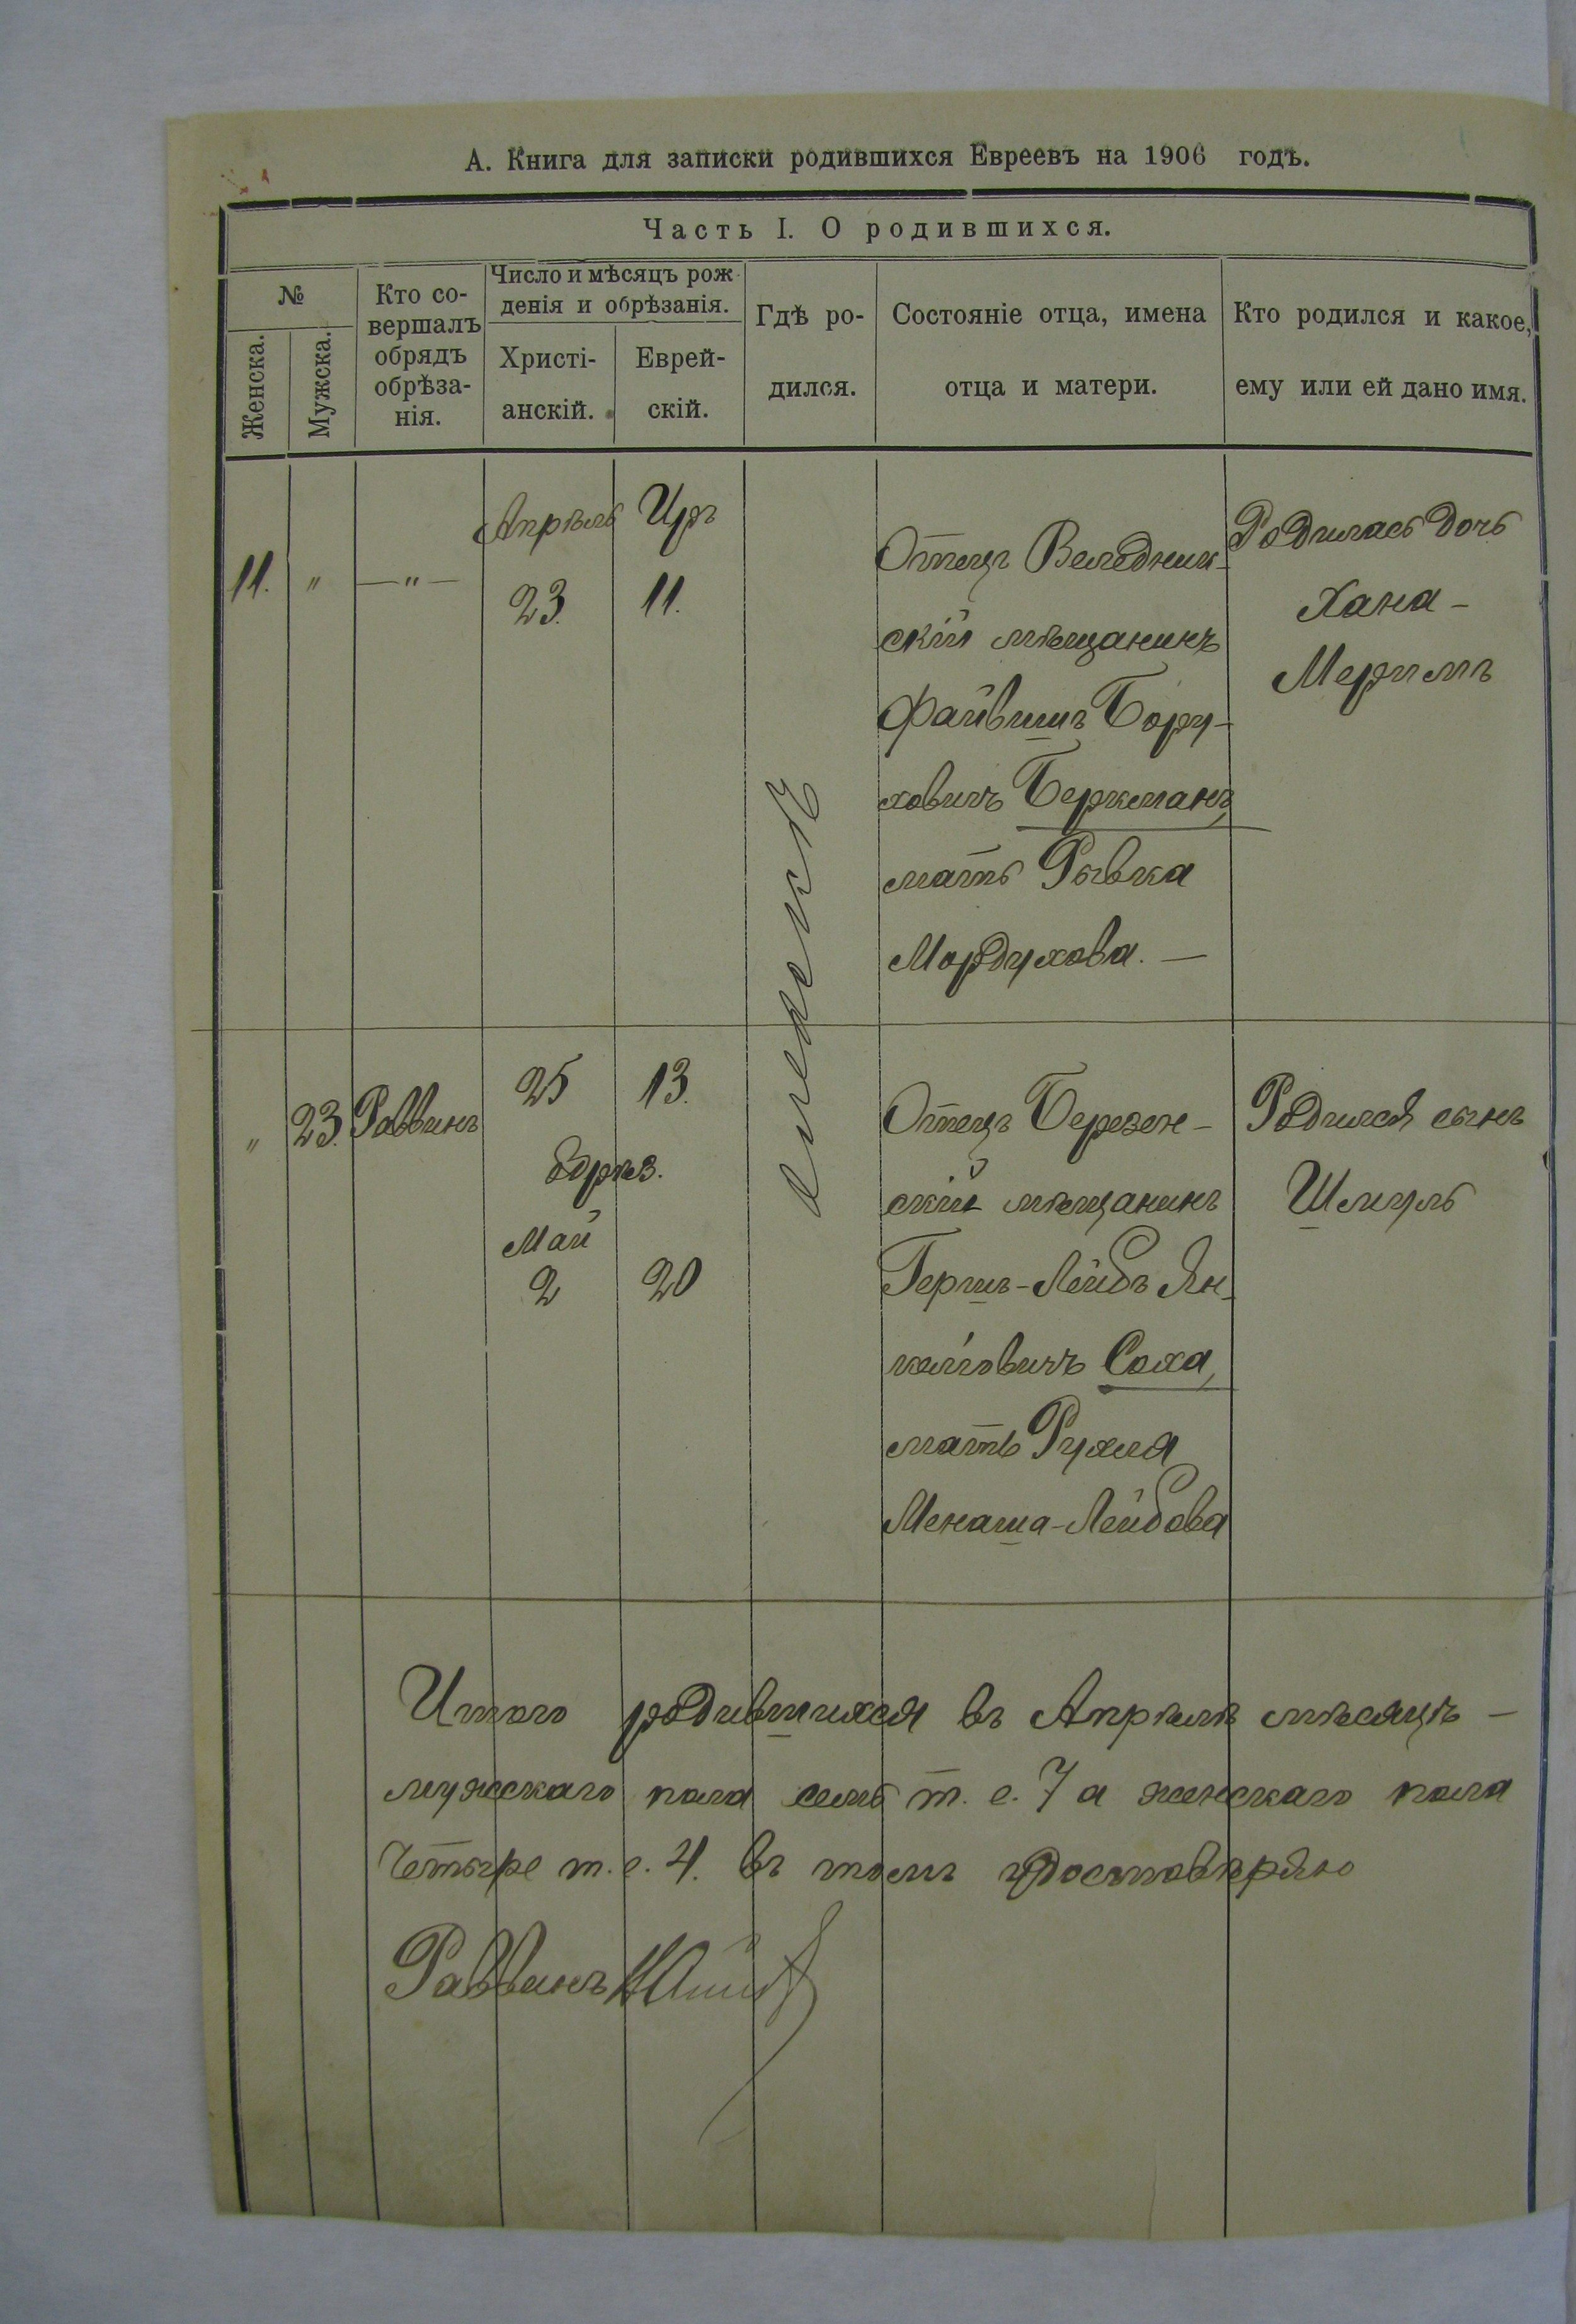 А. Книга для записки родившихся Евреевъ на 1906 годъ.
Часть I. О родившихся.
№
Женска.
Мужска.
Кто со-
вершалъ
обрядъ
обрѣза-
нія.
Число и мѣсяцъ рож
денія и обрѣзанія.
Христі-
анскій.
Еврей-
скій.
Гдѣ ро-
дился.
Состояніе отца, имена
отца и матери.
Кто родился и какое,
ему или ей дано имя.
11.
"
—"—
Апрѣль
23.
Иръ
11.
Отецъ Веледник-
скій мѣщанинъ
Файвишъ Бору-
ховичъ Беркманъ,
мать Рывка
Мордухова. —
Родилась дочь
Хана-
Меримъ
"
23.
Раввинъ
25
13.
Обрѣз.
Май
2
20
Отецъ Березен-
скій мѣщанинъ
Гершъ-Лейбъ Ян-
келовичъ Соха,
мать Рухля
Менаша-Лейбова
Родился сынъ
Шмуль
Итого родившихся въ Апрѣлѣ мѣсяцѣ —
мужескаго пола семь т. е. 7 а женскаго пола
четыре т. е. 4. въ томъ удостовѣряю
Раввинъ